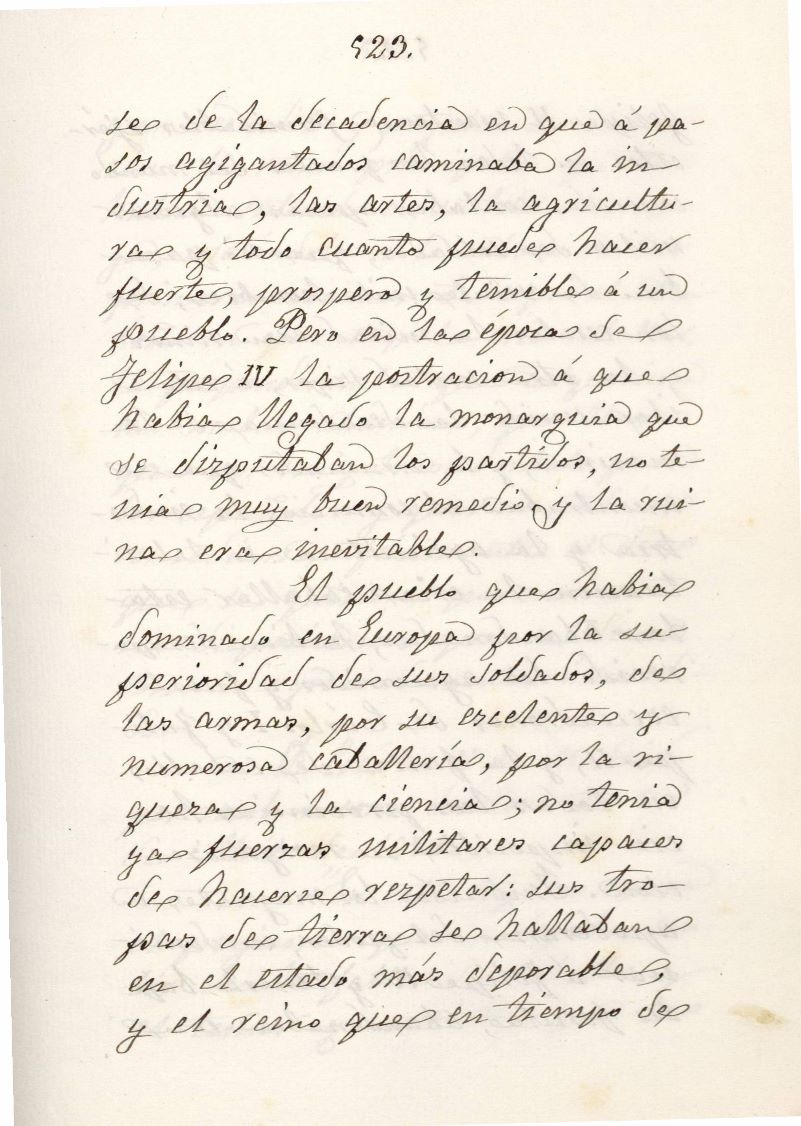 523.
se de la decadencia en que á pa-
sos agigantados caminaba la in-
dustria, las artes, la agricultu-
ra y todo cuanto puede hacer
fuerte, prospero y temible á un
pueblo. Pero en la época de
Felipe IV la postracion á que
habia llegado la monarquia que
se dizputaban los partidos, no te-
nia muy buen remedio, y la rui-
na era inevitable.
El pueblo que habia
dominado en Europa por la su-
perioridad de sus soldados, de
las armas, por su escelente y
numerosa caballería, por la ri-
queza y la ciencia; no tenia
ya fuerzas militares capaces
de hacerse rezpetar: sus tro-
pas de tierra se hallaban
en el estado más deporable,
y el reino que en tiempo de